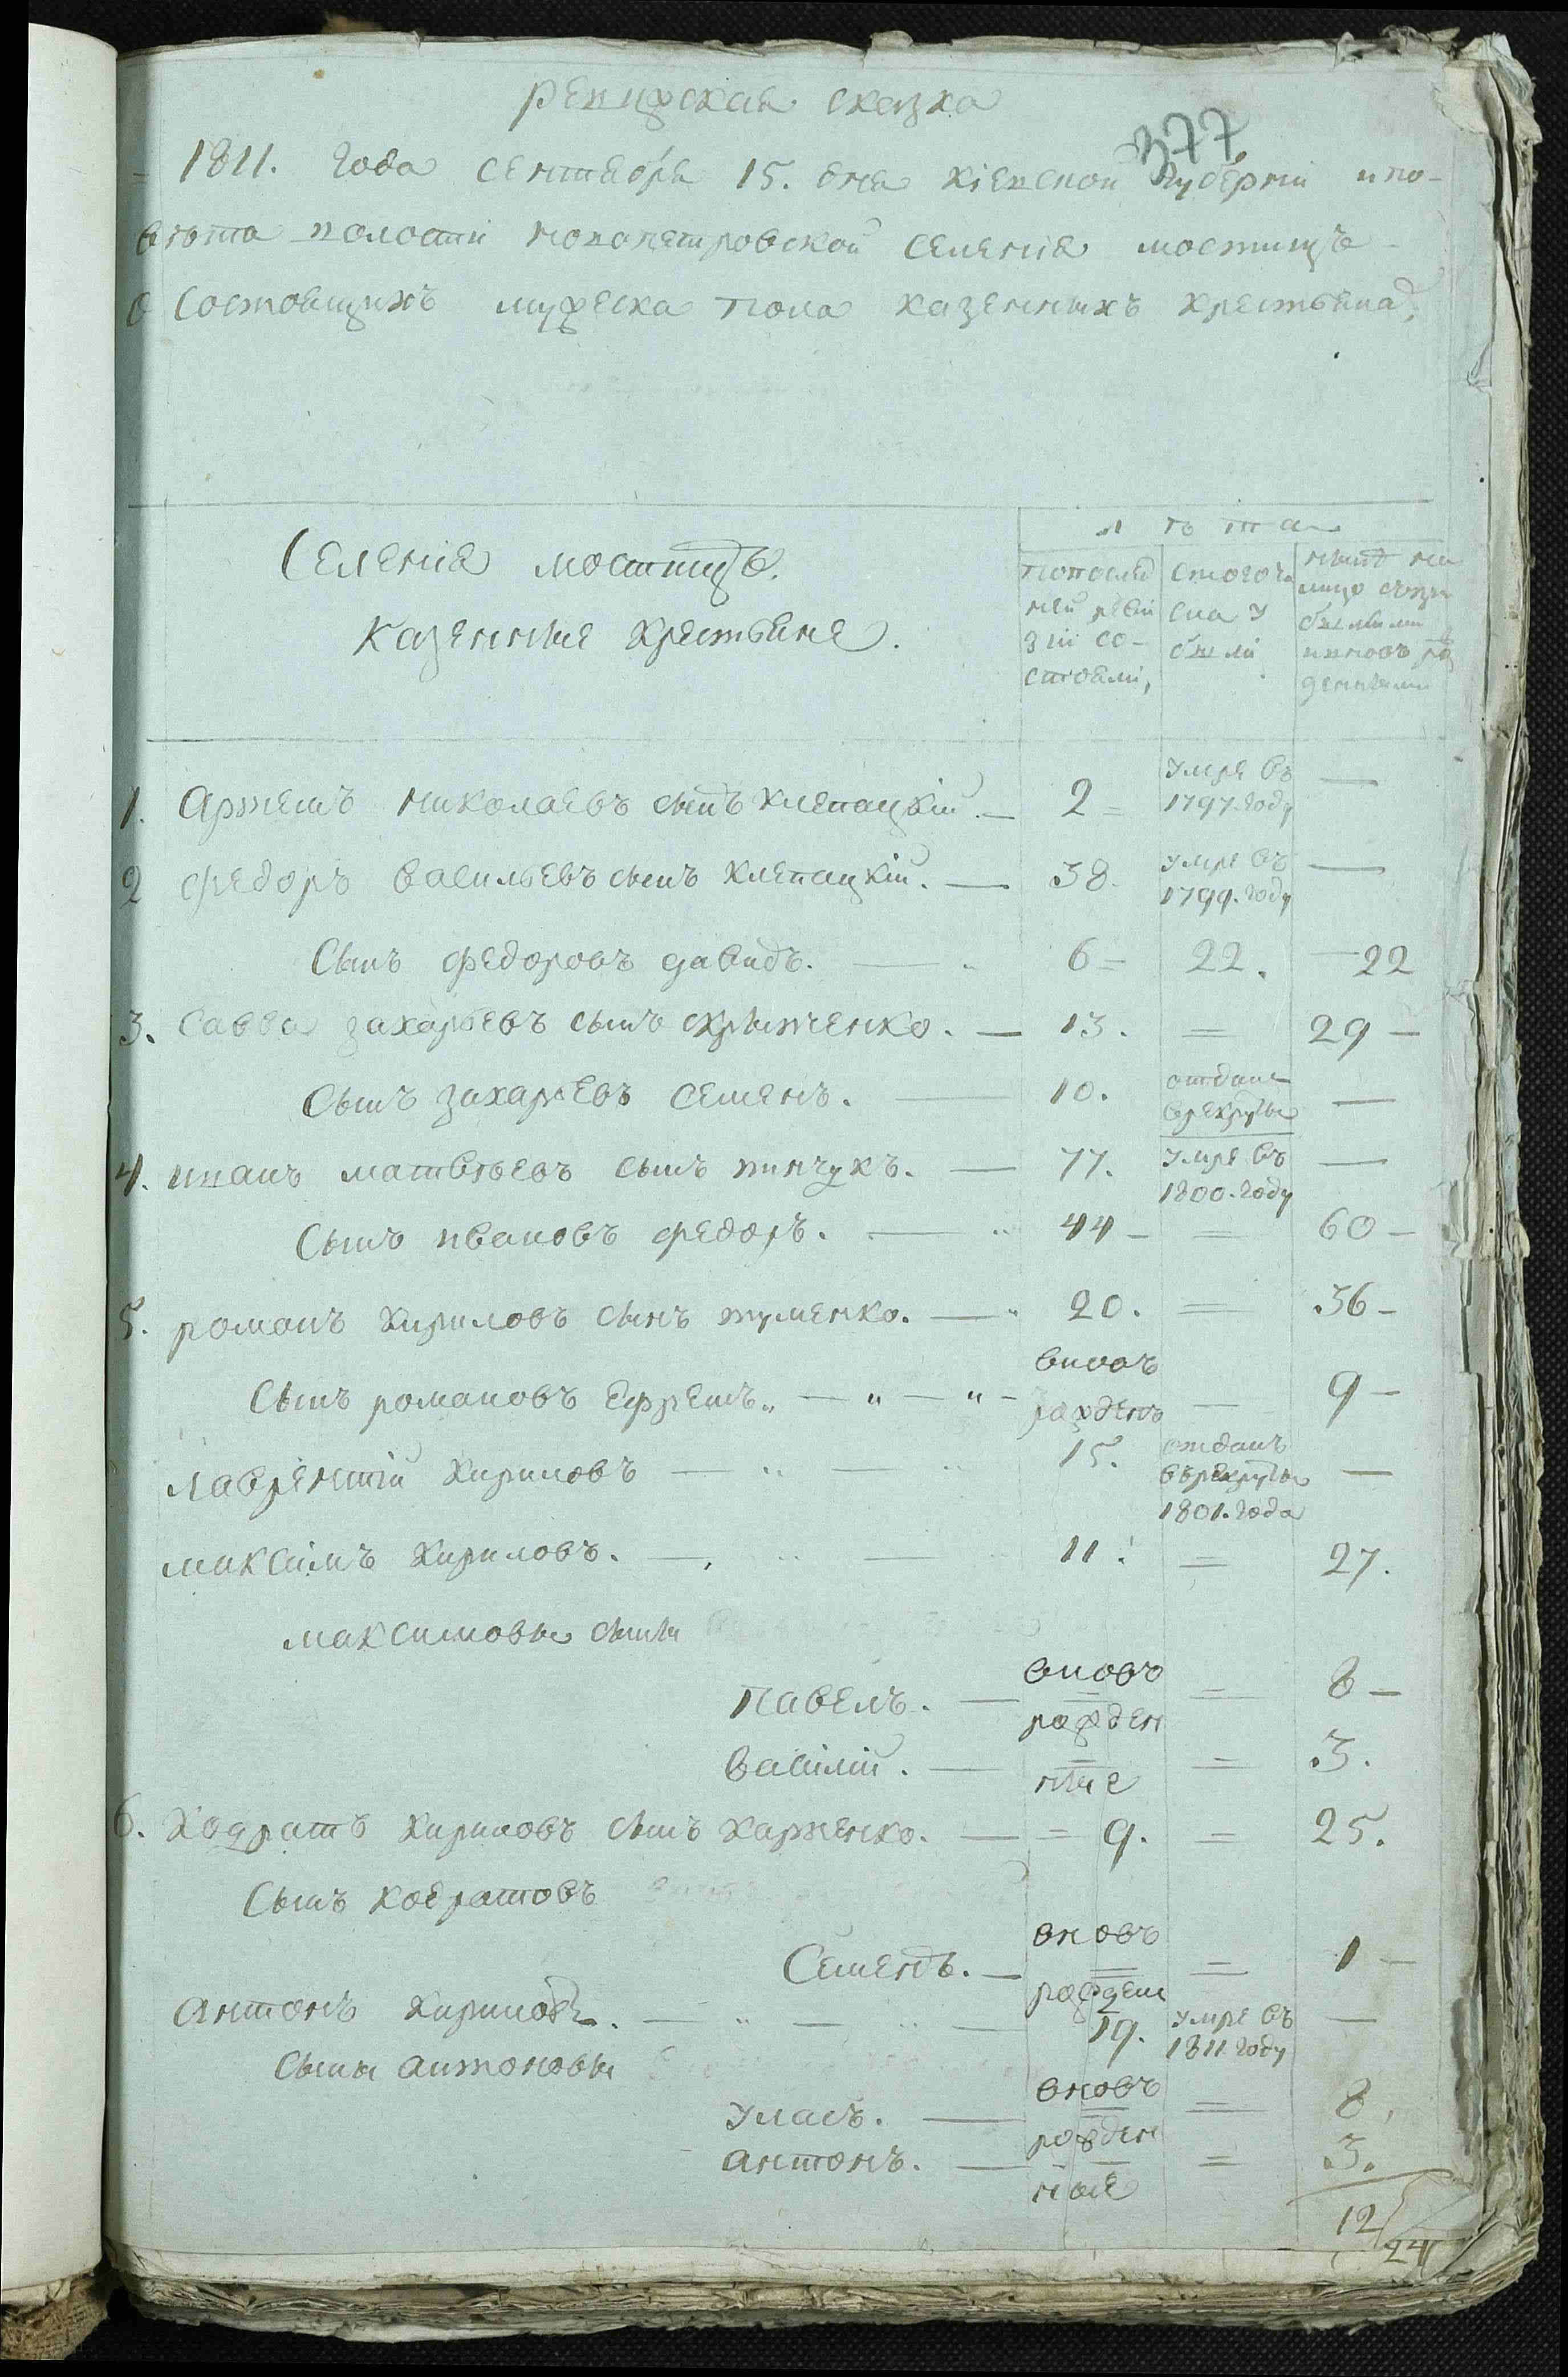 ревизская сказка
377
1811. года сентебря 15. дня кіевской губерніи и по-
вѣта волости новопетровской селенія мостищъ
о состоящихъ мужеска пола казенныхъ крестьянъ,
Селенія мостищъ.
казенные крестьяне.
лѣта
попослед
ней реви
зіи со-
стояли,
стогоча
сла у
были
нынѣ на
лицо
1. Артемъ николаевъ сынъ клепацкій. — 2 = умре въ 1797. году —
2 федоръ васильевъ сынъ клепацкій. — 38. умре въ 1799. году —
Сынъ федоровъ давидъ. — 6 = 22. — 22
3. савва захарьевъ сынъ — 13. = 29 —
Сынъ захарьевъ семенъ. — 10. отданъ врекруты —
4. иванъ матвѣевъ сынъ пинчукъ. — 77. умре въ 1800. году —
Сынъ ивановъ федоръ. — 44 — = 60 —
5. романъ кириловъ сынъ — 20. = 36 —
Сынъ романовъ ефремъ. — вновъ рожденъ — 9 —
лаврентій кириловъ — 15. отданъ въ рекруты 1801. года —
максимъ кириловъ. — 11. = 27.
максимовы сыны
павелъ. — вновъ = 8 —
рожден
василій. — ные = 3.
6. кодратъ кириловъ сынъ харченко. — = 9. = 25.
Сынъ кодратовъ
Семенъ. — вновъ рожден = 1 —
антонъ кириловъ. — 19. умре въ 1811. году —
сыны антоновы
уласъ. — вновъ = 8.
рожден
антонъ. — ные = 3.
12
24